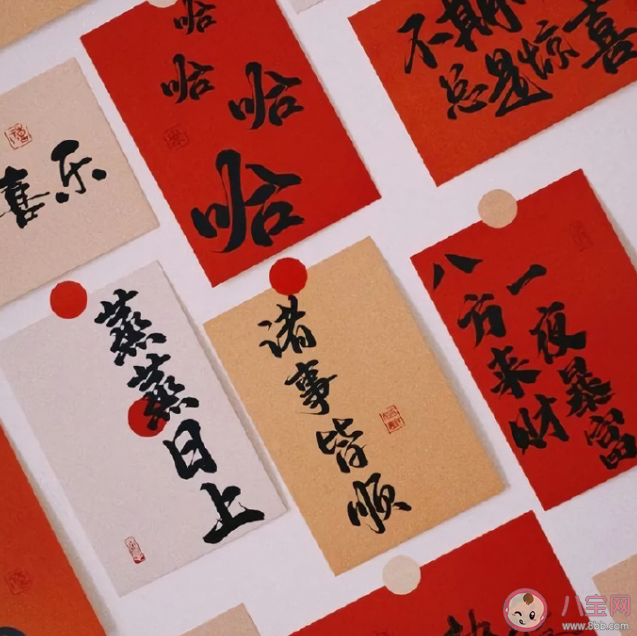 哈
哈
哈
哈
不期
总是惊喜
喜乐
蒸蒸日上
诸事皆顺
八方来财
一夜暴富
八宝网
www.8bb.com